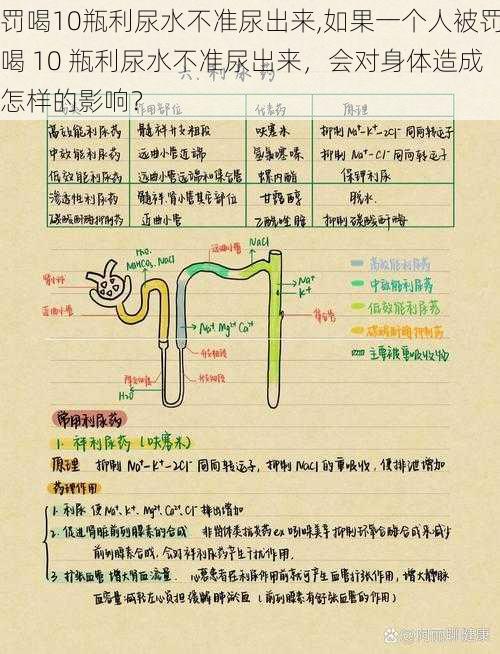 罚喝10瓶利尿水不准尿出来,如果一个人被罚
喝 10 瓶利尿水不准尿出来，会对身体造成
怎样的影响？
六、利尿药
作用部位 代表药 原理
高效能利尿药 髓袢升支粗段 呋塞米 抑制 Na⁺-K⁺-2Cl⁻ 同向转运子
中效能利尿药 远曲小管近端 氢氯噻嗪 抑制 Na⁺-Cl⁻ 同向转运子
低效能利尿药 远曲小管远端和集合管 螺内酯 保钾利尿
渗透性利尿药 髓袢.肾小管其它部位 甘露醇 脱水.
碳酸酐酶抑制药 近曲小管 乙酰唑胺 抑制碳酸酐酶
远曲小管 NaCl
H₂O.
NaHCO₃、NaCl
高效能利尿药
肾小体
Na⁺
中效能利尿药
K⁺
低效能利尿药
近曲小管
集合管
Na⁺ Mg²⁺ Ca²⁺
碳酸酐酶抑制药
主要被重吸收物
升支粗段
降支细段
升支细段
H₂O
常用利尿药
1. 袢利尿药 (呋塞米)
原理 抑制 Na⁺-K⁺-2Cl⁻ 同向转运子，抑制 NaCl 的重吸收，使排泄增加
药理作用
1. 利尿 使 Na⁺. K⁺. Mg²⁺. Ca²⁺. Cl⁻ 排出增加
2. 促进肾脏前列腺素的合成 非甾体类抗炎药 ex 吲哚美辛 抑制环氧合酶合成来减少
前列腺素合成，会对袢利尿药产生干扰作用.
3. 扩张血管 增大肾血流量. 心衰患者在利尿作用前就可产生血管扩张作用，增大静脉
血容量.减轻左心负担 缓解肺淤血 (前列腺素有舒张血管的作用)
@阿丽聊健康